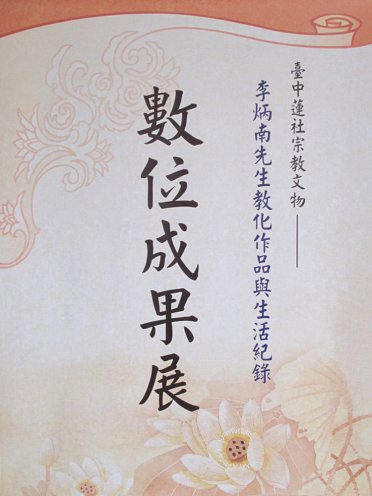 臺中蓮社宗教文物——
李炳南先生教化作品與生活紀錄
數位成果展